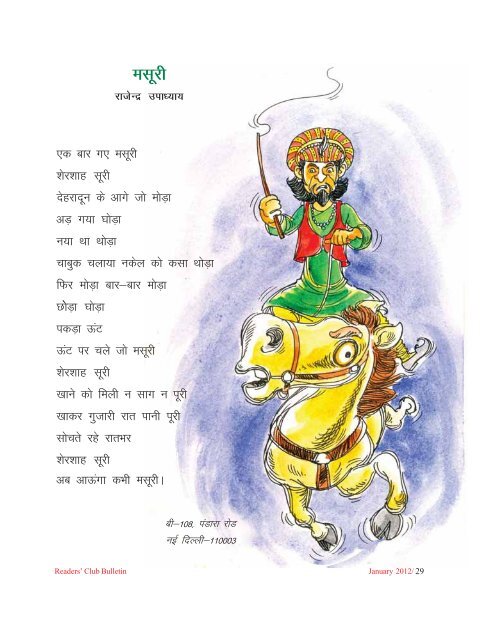 मसूरी
राजेन्द्र उपाध्याय
एक बार गए मसूरी
शेरशाह सूरी
देहरादून के आगे जो मोड़ा
अड़ गया घोड़ा
नया था थोड़ा
चाबुक चलाया नकेल को कसा थोड़ा
फिर मोड़ा बार–बार मोड़ा
छोड़ा घोड़ा
पकड़ा ऊंट
ऊंट पर चले जो मसूरी
शेरशाह सूरी
खाने को मिली न साग न पूरी
खाकर गुजारी रात पानी पूरी
सोचते रहे रातभर
शेरशाह सूरी
अब आऊंगा कभी मसूरी।
बी–108, पंडारा रोड
नई दिल्ली–110003
Readers' Club Bulletin
January 2012/ 29